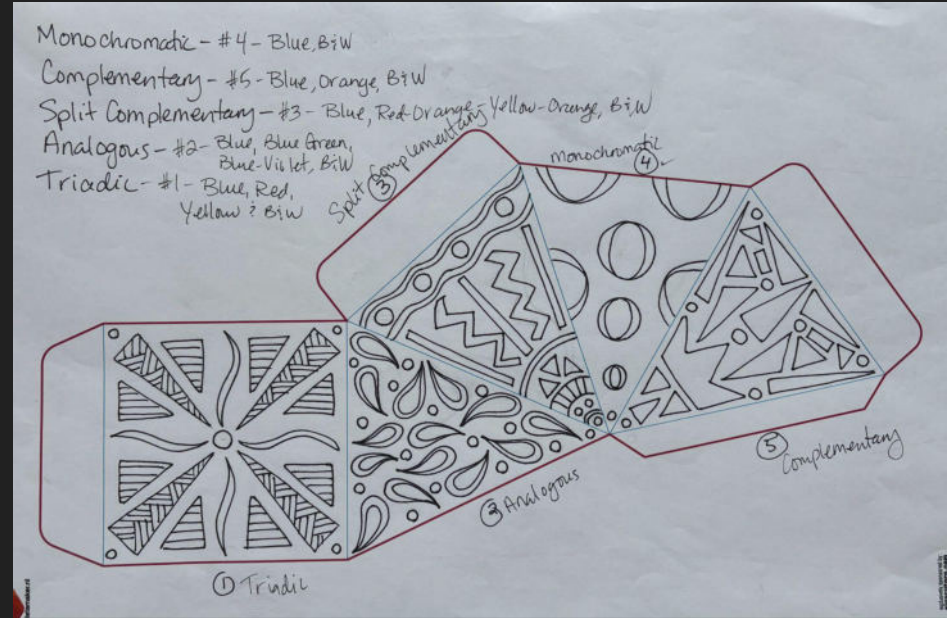 Monochromatic - #4 - Blue, B&W
Complementary - #5 - Blue, Orange, B&W
Split Complementary - #3 - Blue, Red-Orange, Yellow-Orange, B&W
Analogous - #2 - Blue, Blue Green,
Blue-Violet, B&W
Triadic - #1 - Blue, Red,
Yellow & B&W
Split Complementary
3
Monochromatic
4
5
Complementary
2 Analogous
1 Triadic